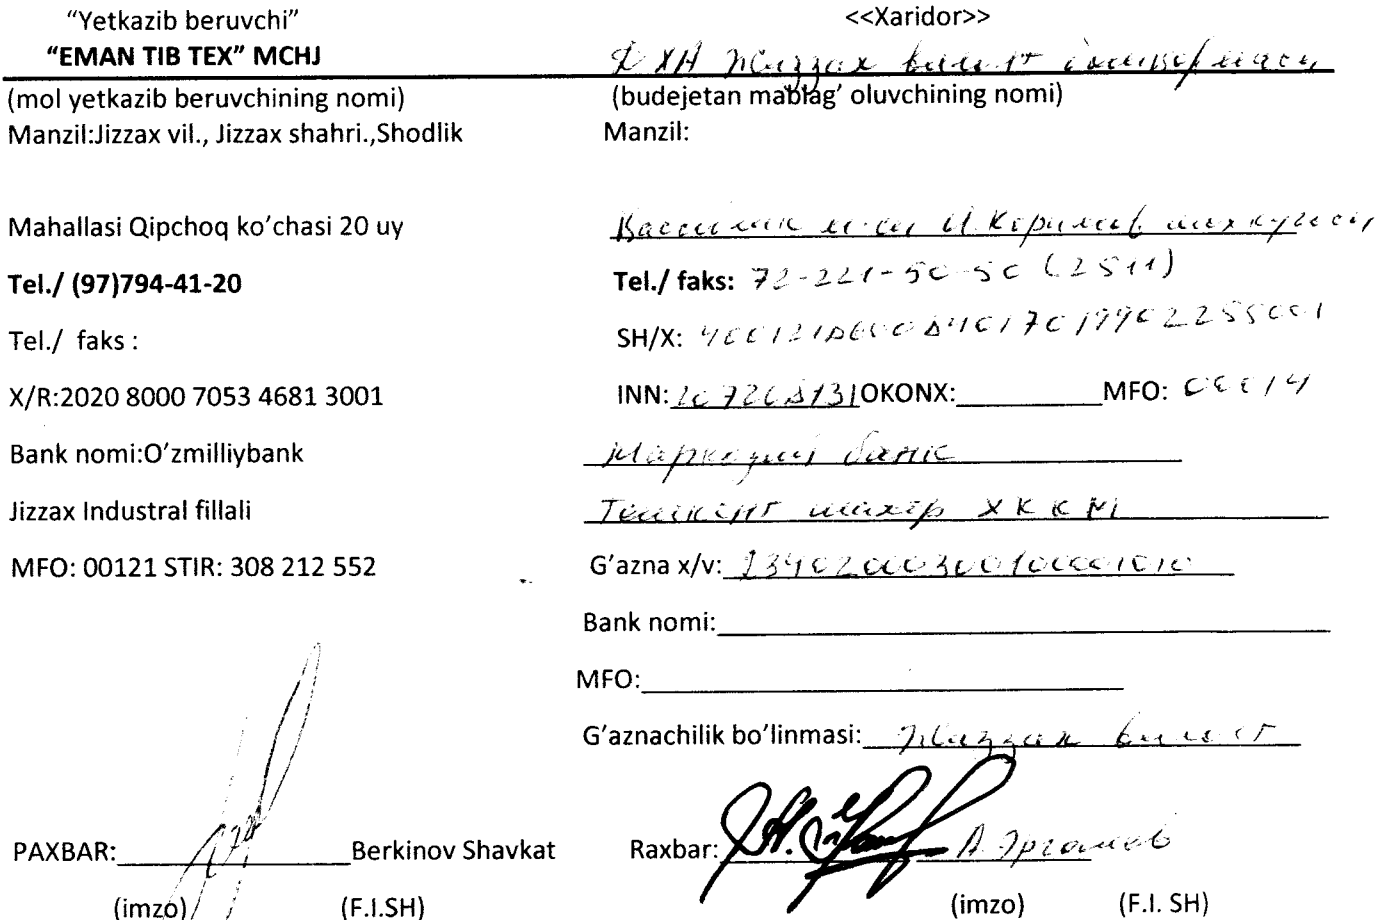 “Yetkazib beruvchi”
“EMAN TIB TEX” MCHJ
(mol yetkazib beruvchining nomi)
Manzil:Jizzax vil., Jizzax shahri.,Shodlik
Mahallasi Qipchoq ko’chasi 20 uy
Tel./ (97)794-41-20
Tel./ faks :
X/R:2020 8000 7053 4681 3001
Bank nomi:O’zmilliybank
Jizzax Industral fillali
MFO: 00121 STIR: 308 212 552
PAXBAR: Berkinov Shavkat
(imzo) (F.I.SH)
<<Xaridor>>
ДХХ Жиззах
(budejetan mablag’ oluvchining nomi)
Manzil:
Tel./ faks: 72-221-50-50 (2511)
SH/X:
INN: OKONX: MFO: 00014
Марказий банк
Тошкент шахар ХККМ
G’azna x/v:
Bank nomi:
MFO:
G’aznachilik bo’linmasi: Жиззах
Raxbar: А.
(imzo) (F.I. SH)